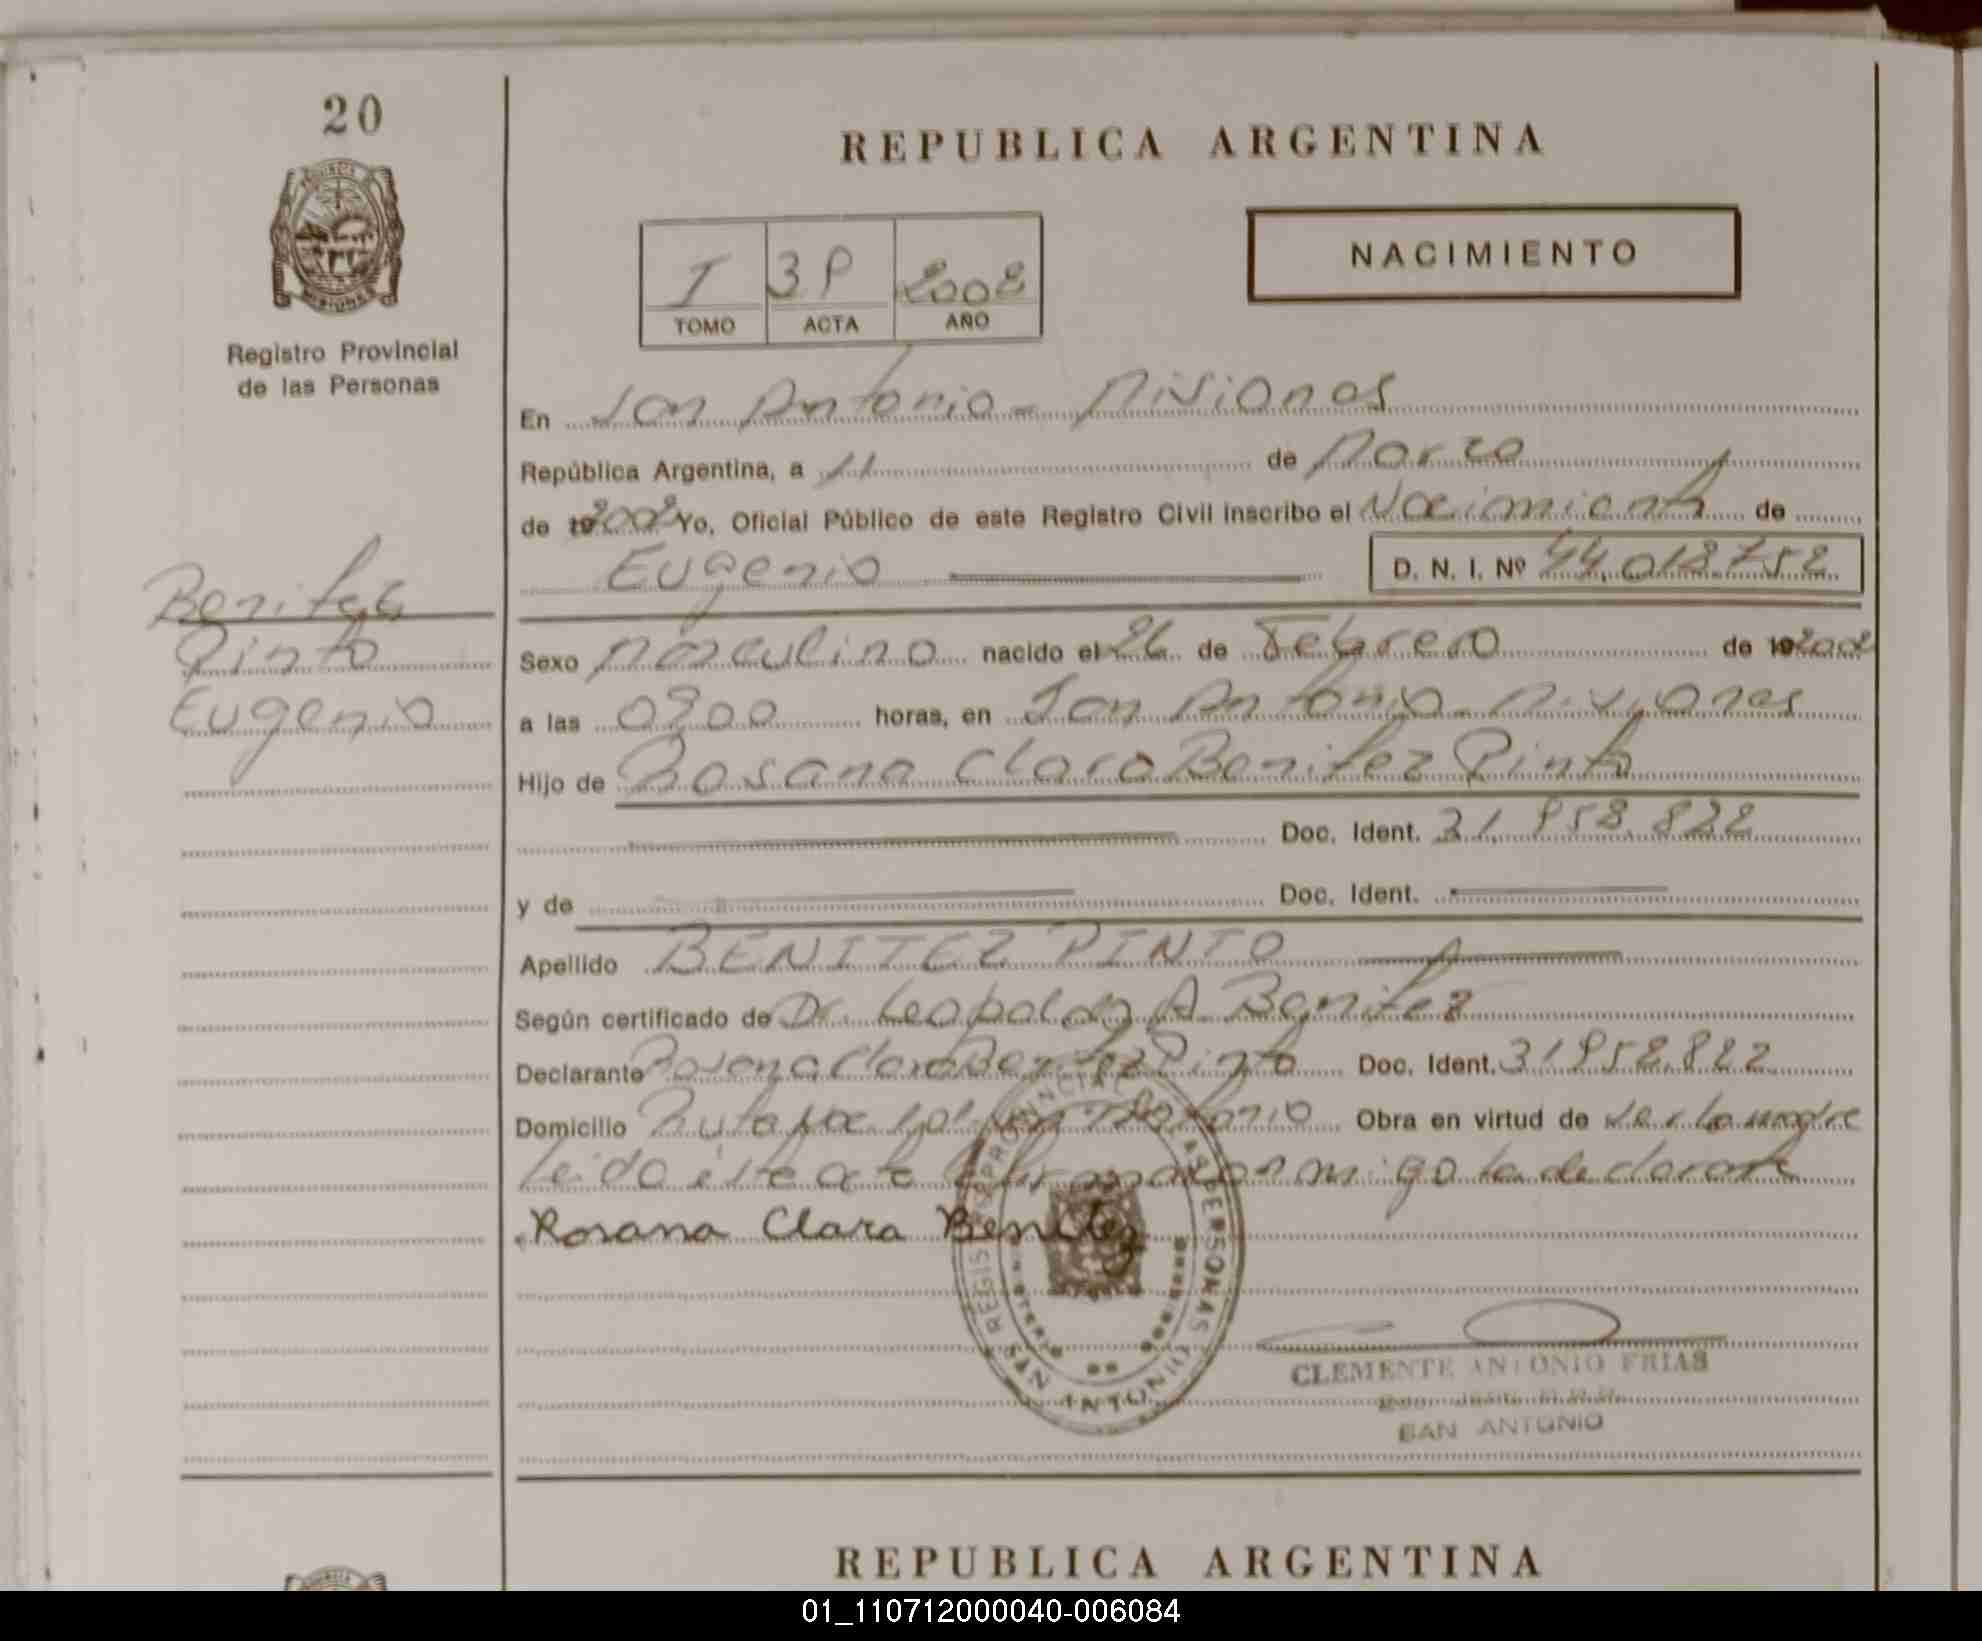 20
REPUBLICA ARGENTINA
NACIMIENTO
I 3P 2002
TOMO ACTA AÑO
Registro Provincial
de las Personas
En San Antonio - Misiones
República Argentina, a 11 de Marzo
de 192002 Yo, Oficial Público de este Registro Civil inscribo el Nacimiento de
Eugenio D. N. I. Nº 44.018.752
Benitez
Pinto
Eugenio
Sexo masculino nacido el 26 de Febrero de 192002
a las 0200 horas, en San Antonio - Misiones
Hijo de Rosana Clara Benitez Pinto
Doc. Ident. 31.958.822
y de Doc. Ident.
Apellido BENITEZ PINTO
Según certificado de Dr. Leopoldo A Benitez
Declarante Rosana Clara Benitez Pinto Doc. Ident. 31958.822
Domicilio Ruta Antonio Obra en virtud de ser la madre
Leido este acta firma conmigo la declarante
Rosana Clara Benitez
REGISTRO PROVINCIAL DE LAS PERSONAS
SAN ANTONIO
CLEMENTE ANTONIO FRIAS
SAN ANTONIO
REPUBLICA ARGENTINA
01_110712000040-006084